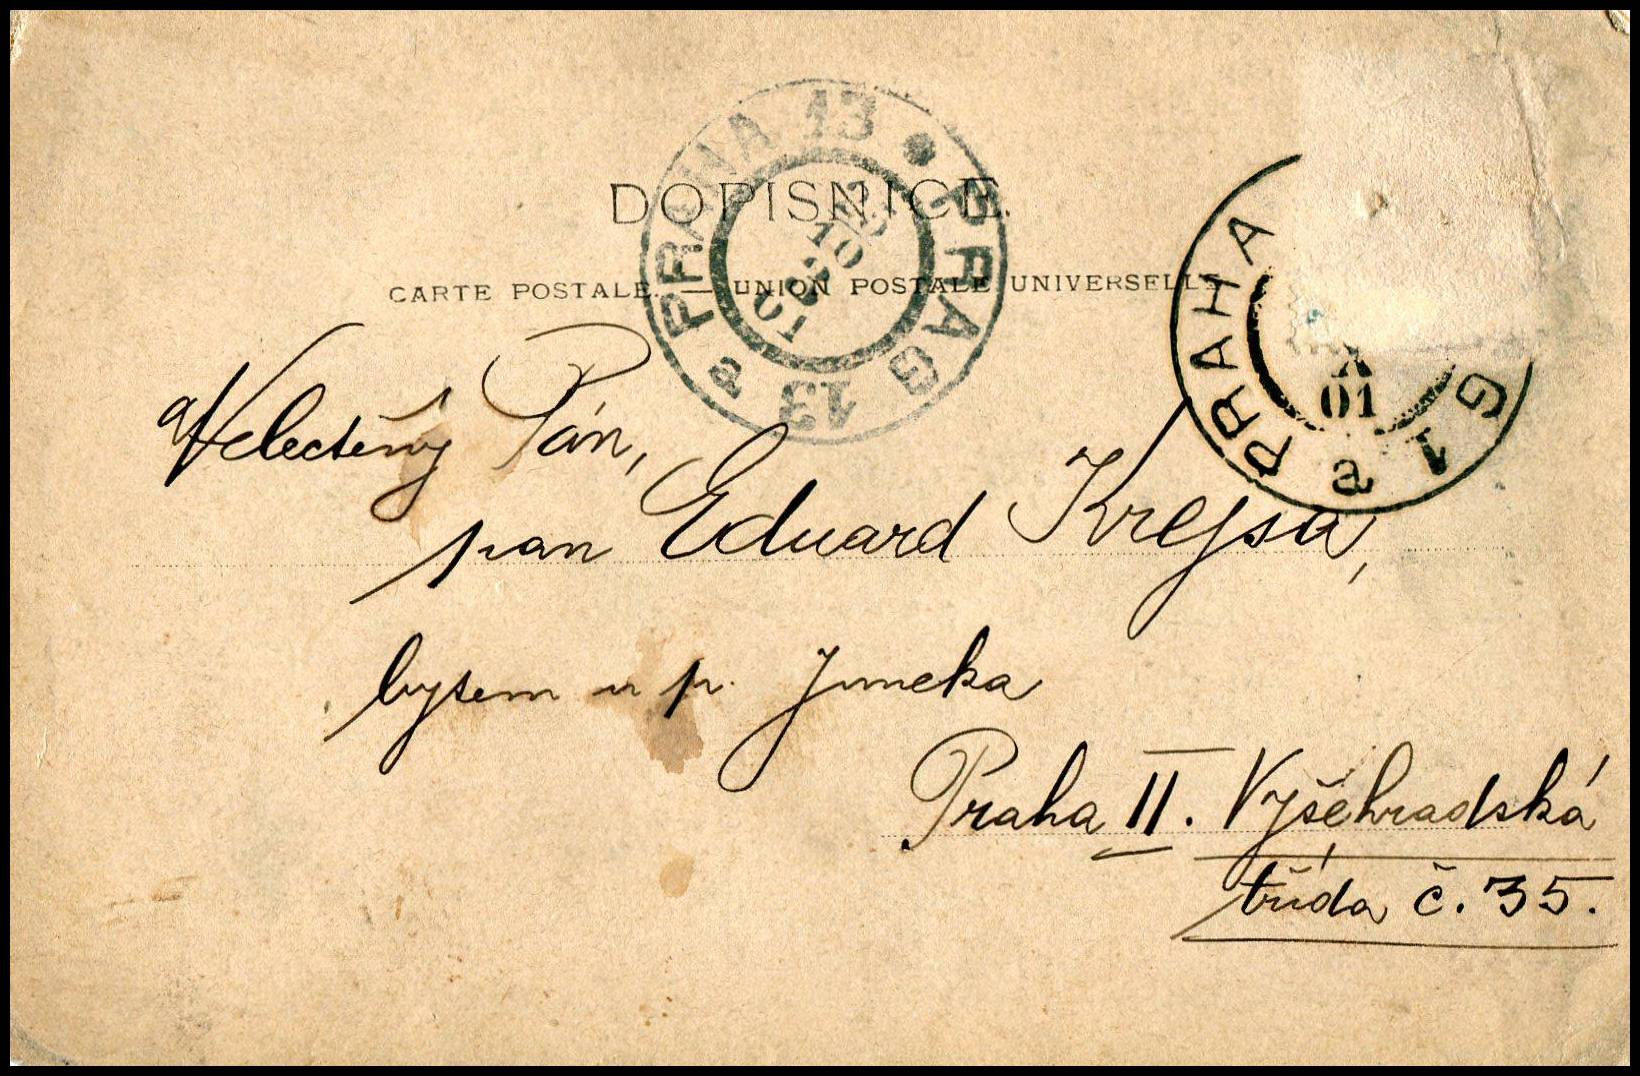 DOPISNICE.
CARTE POSTALE. — UNION POSTALE UNIVERSELLE
PRAHA 13 PRAG 13 a
10
01
PRAHA 1 G a
01
Velectěný Pán,
pan Eduard Krejsa,
bytem u p.
Praha II. Vyšehradská
třída č. 35.